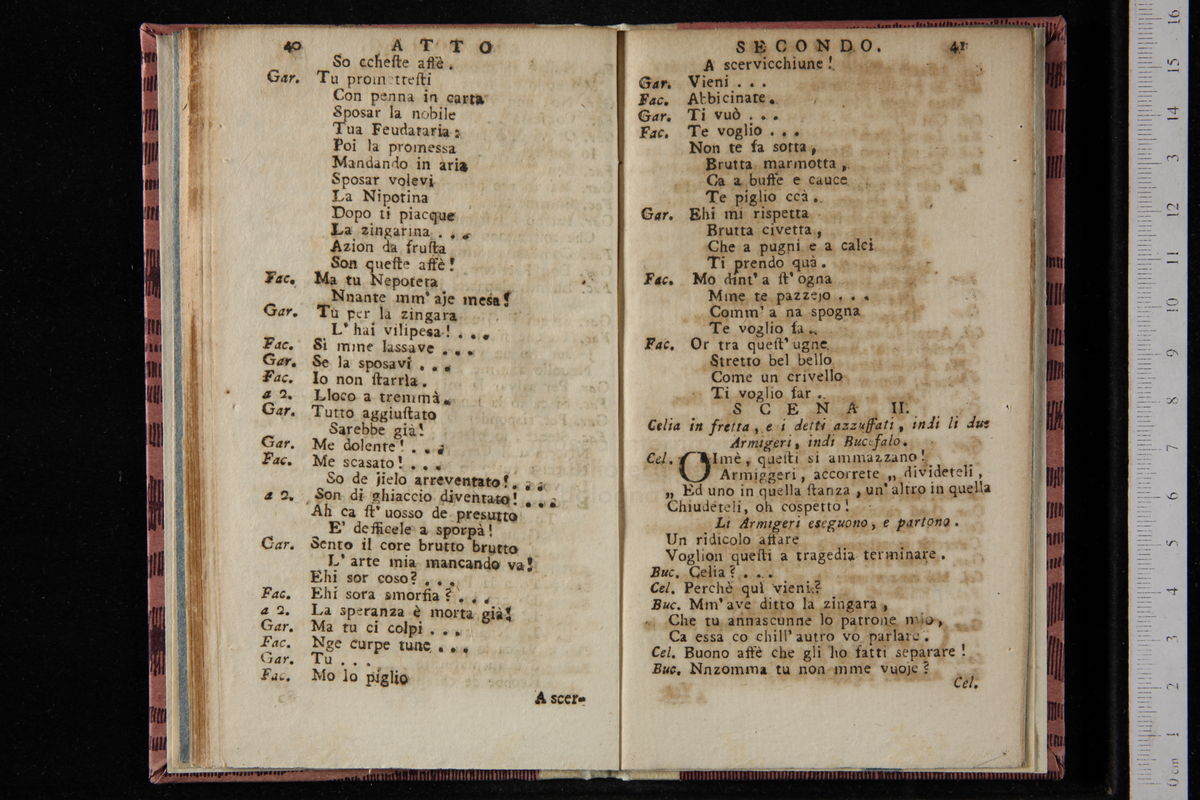 40 ATTO
So ccheste affè.
Gar. Tu promettesti
Con penna in carta
Sposar la nobile
Tua Feudataria:
Poi la promessa
Mandando in aria
Sposar volevi
La Nipotina
Dopo ti piacque
La zingarina . . .
Azion da frusta
Son queste affè!
Fac. Ma tu Nepoteta
Nnante mm' aje mesa!
Gar. Tu per la zingara
L' hai vilipesa! . . .
Fac. Si mme lassave . . .
Gar. Se la sposavi . . .
Fac. Io non starrìa.
a 2. Lloco a tremmà.
Gar. Tutto aggiustato
Sarebbe già!
Gar. Me dolente! . . .
Fac. Me scasato! . . .
So de jielo arreventato! . . .
a 2. Son di ghiaccio diventato! . . .
Ah ca st' uosso de presutto
E' defficele a sporpà!
Gar. Sento il core brutto brutto
L' arte mia mancando va!
Ehi sor coso? . . .
Fac. Ehi sora smorfia? . . .
a 2. La speranza è morta già!
Gar. Ma tu ci colpi . . .
Fac. Nge curpe tune . . .
Gar. Tu . . .
Fac. Mo lo piglio
A scer-
SECONDO. 41
A scervicchiune!
Gar. Vieni . . .
Fac. Abbicinate.
Gar. Ti vuò . . .
Fac. Te voglio . . .
Non te fa sotta,
Brutta marmotta,
Ca a buffe e cauce
Te piglio ccà.
Gar. Ehi mi rispetta
Brutta civetta,
Che a pugni e a calci
Ti prendo quà.
Fac. Mo dint' a st' ogna
Mme te pazzejo . . .
Comm' a na spogna
Te voglio fa.
Fac. Or tra quest' ugne
Stretto bel bello
Come un crivello
Ti voglio far.
SCENA II.
Celia in fretta, e i detti azzuffati, indi li due
Armigeri, indi Bucefalo.
Cel. OImè, questi si ammazzano!
Armiggeri, accorrete „ divideteli,
„ Ed uno in quella stanza, un' altro in quella
Chiudeteli, oh cospetto!
Li Armigeri eseguono, e partono.
Un ridicolo affare
Voglion questi a tragedia terminare.
Buc. Celia? . . .
Cel. Perchè quì vieni?
Buc. Mm' ave ditto la zingara,
Che tu annascunne lo patrone mio,
Ca essa co chill' autro vo parlare.
Cel. Buono affè che gli ho fatti separare!
Buc. Nnzomma tu non mme vuoje?
Cel.